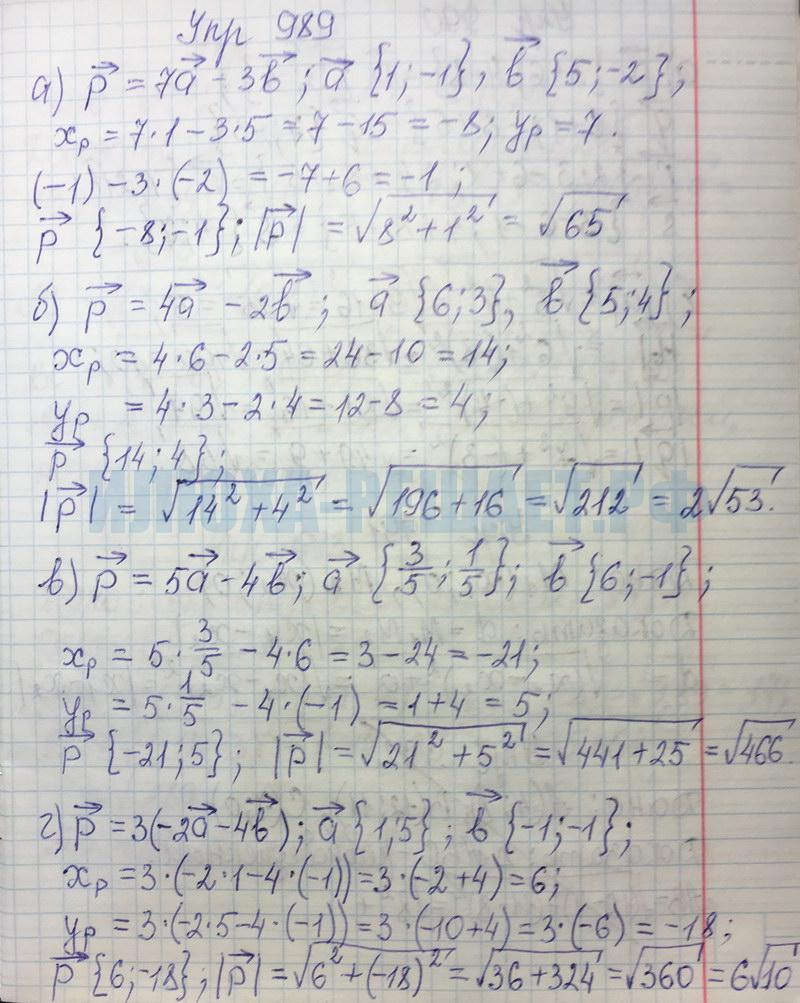 Упр 989
а) p⃗ = 7a⃗ - 3b⃗; a⃗ {1; -1}, b⃗ {5; -2};
xₚ = 7·1 - 3·5 = 7 - 15 = -8; yₚ = 7·
(-1) - 3·(-2) = -7+6 = -1;
p⃗ {-8; -1}; |p⃗| = √(8² + 1²) = √65
б) p⃗ = 4a⃗ - 2b⃗; a⃗ {6; 3}, b⃗ {5; 4};
xₚ = 4·6 - 2·5 = 24 - 10 = 14;
yₚ = 4·3 - 2·4 = 12 - 8 = 4;
p⃗ {14; 4};
|p⃗| = √(14² + 4²) = √(196 + 16) = √212 = 2√53.
ИЛЮХА-РЕШАЕТ.РФ
в) p⃗ = 5a⃗ - 4b⃗; a⃗ {3/5; 1/5}; b⃗ {6; -1};
xₚ = 5·3/5 - 4·6 = 3 - 24 = -21;
yₚ = 5·1/5 - 4·(-1) = 1 + 4 = 5;
p⃗ {-21; 5}; |p⃗| = √(21² + 5²) = √(441 + 25) = √466.
г) p⃗ = 3(-2a⃗ - 4b⃗); a⃗ {1, 5}; b⃗ {-1; -1};
xₚ = 3·(-2·1 - 4·(-1)) = 3·(-2 + 4) = 6;
yₚ = 3·(-2·5 - 4·(-1)) = 3·(-10 + 4) = 3·(-6) = -18;
p⃗ {6; -18}; |p⃗| = √(6² + (-18)²) = √(36 + 324) = √360 = 6√10